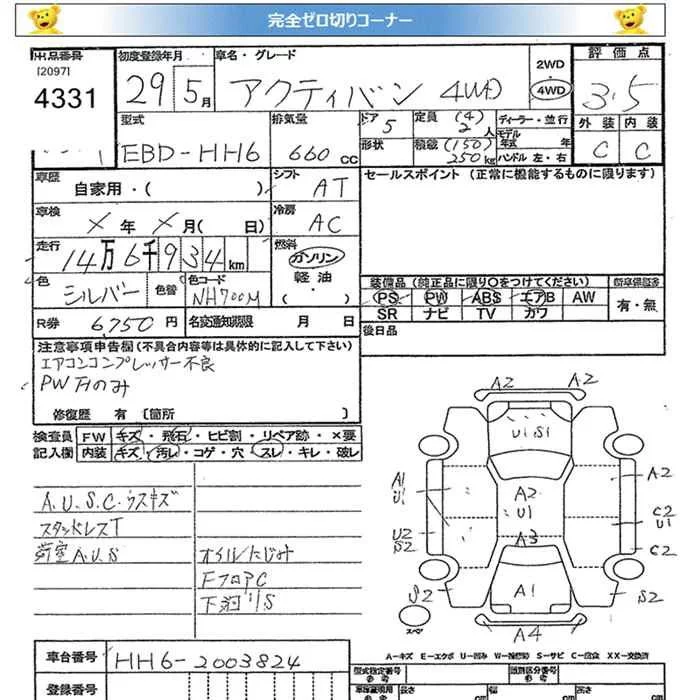 完全ゼロ切りコーナー
出品番号 初度登録年月 車名・グレード 2WD・4WD 評価点
[2097]
4331 29年 5月 アクティバン 4WD 3.5
型式 排気量 ドア 定員 (4) ディーラー・並行 外装 内装
EBD-HH6 660cc 5 2人 モデル年式 年 C C
形状 積載 (150) 250kg ハンドル 左・右
車歴 自家用・( ) シフト AT セールスポイント (正常に機能するものに限ります)
車検 X年 X月( 日) 冷房 AC
走行 14万6千934km 燃料 ガソリン 軽油・( )
色 シルバー 色替 色コード NH700M
装備品 (純正品に限り○をつけてください) 新車保証書
PS PW ABS エアB AW 有・無
SR ナビ TV カワ
R券 6,750円 名変通知期限 月 日 後日品
注意事項申告欄(不具合内容等は具体的に記入して下さい)
エアコンコンプレッサー不良
PW 右のみ
修復歴 有 〔箇所 〕
検査員 FW キズ・飛石・ヒビ割・リペア跡・×要
記入欄 内装 キズ・汚レ・コゲ・穴・スレ・キレ・破レ
A.U.S.C.ウスキズ
スタッドレスT
荷室A.U.S オイルにじみ
FフロアC
下廻りS
A2 A2
U1 S1
A1 U1 A2 U1 A2
C2 U1
U2 S2 A3 C2
S2 A1 S2
スペア A4
A-キズ E-エクボ U-凹み W-補修跡 S-サビ C-腐食 XX-交換済
車台番号 HH6-2003824
登録番号
型式指定番号 類別区分番号
長さ cm 幅 cm 高さ cm